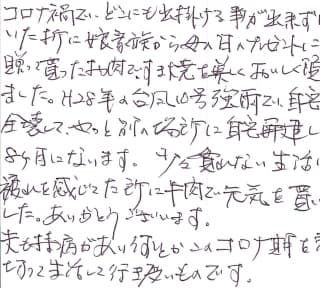 コロナ禍で、どこにも出掛ける事が出来ずに
いた折に娘家族から母の日のプレゼントに
贈って貰ったお肉ですき焼を楽しくおいしく頂
ました。H28年の台風10号強雨で、自宅
全壊して、やっと別の場所に自宅再建し
8ヶ月になります。少し落ちない生活に
疲れを感じてた所に牛肉で元気を貰い
した。ありがとうございます。
夫も持病があり何とかこのコロナ期を乗
切って生活して行き度いものです。